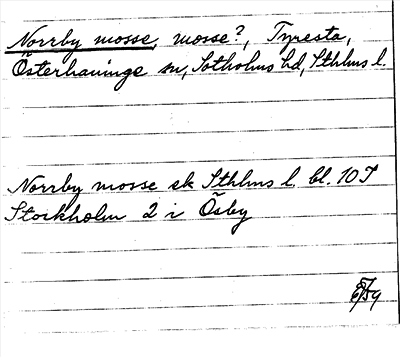 Norrby mosse, mosse?, Tyresta,
Österhaninge sn, Sotholms hd, Sthlms l.
Norrby mosse sk Sthlms l. bl. 10 I
Stockholm 2 i Ösby